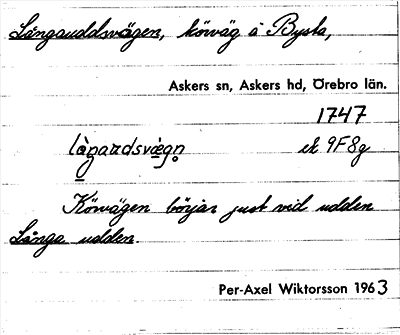 Långauddsvägen, körväg å Bysta,
Askers sn, Askers hd, Örebro län.
1747
lågardsvægn̥ ek 9F8g
Körvägen börjar just vid udden
Långa udden.
Per-Axel Wiktorsson 1963